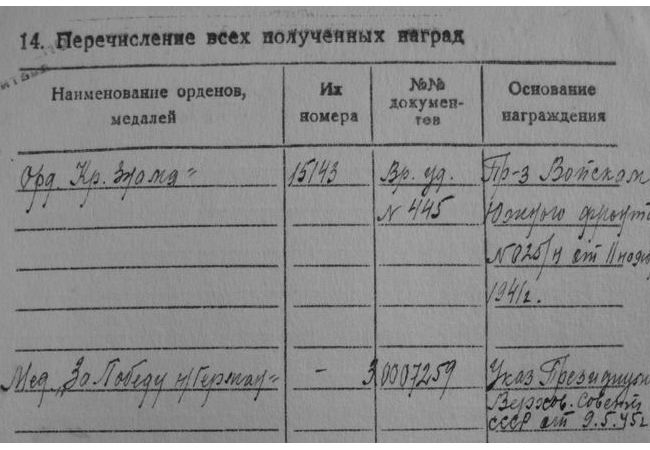 14. Перечисление всех полученных наград
Наименование орденов,
медалей
Их
номера
№№
докумен-
тов
Основание
награждения
Орд. Кр. Знамя"
15143
Вр. уд.
N 445
Пр-з Войскам
Южного фронта
N 025/н от 11 нояб
1941г.
Мед. "За Победу н/Герман"
-
З 0007259
Указ Президиума
Верхов. Совета
СССР от 9.5.45г